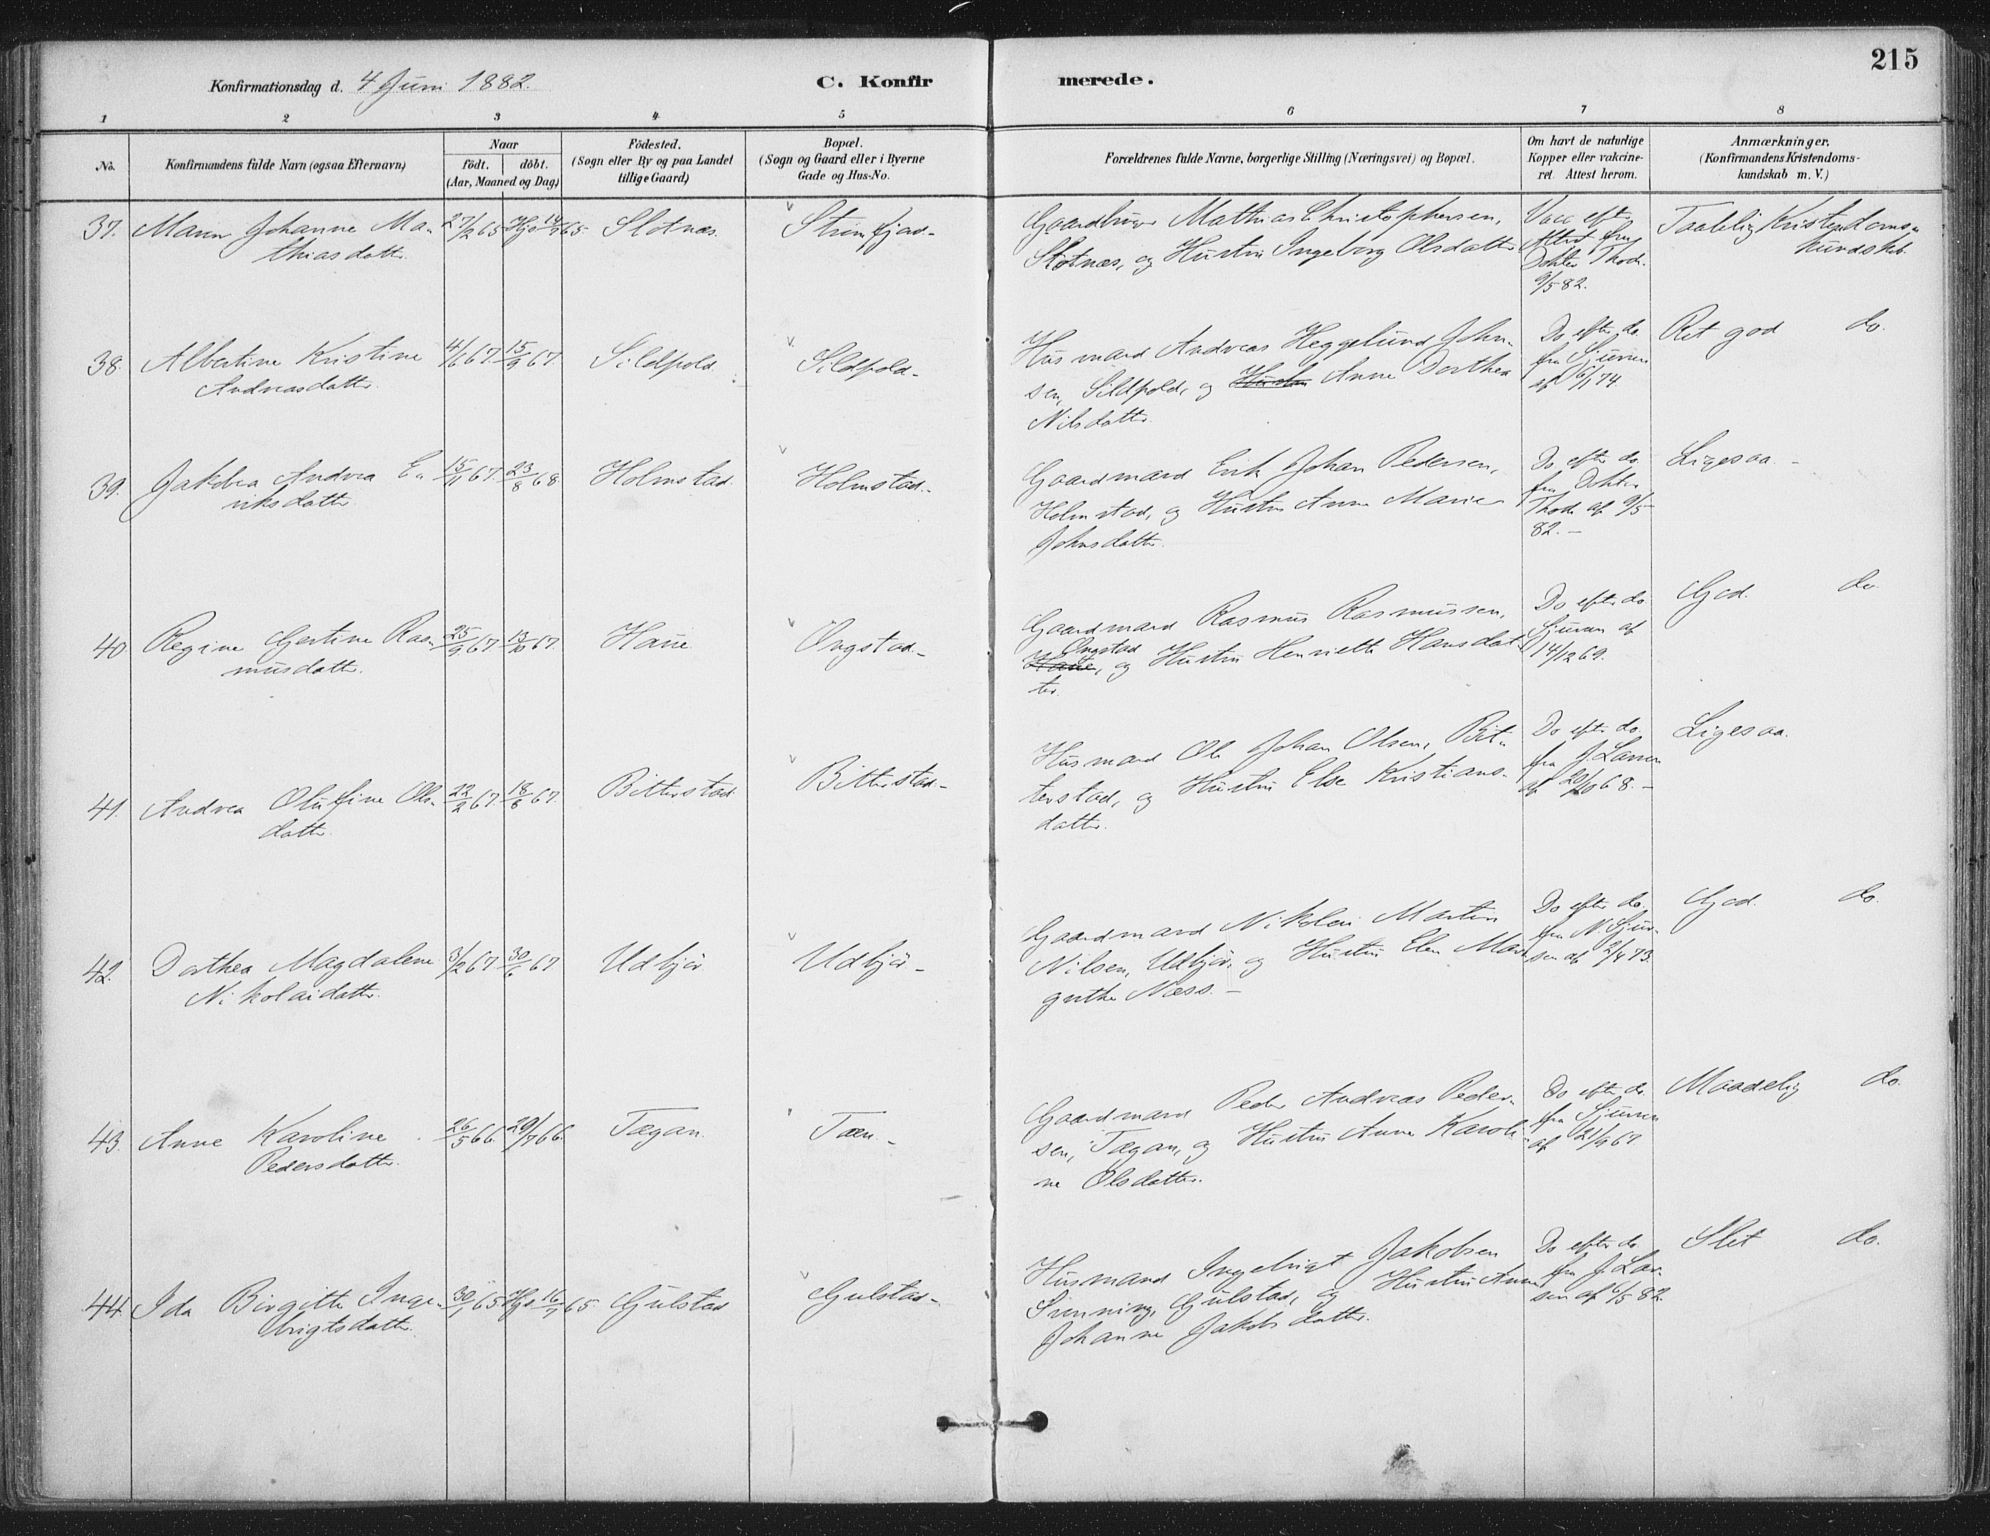 215
Konfirmationsdag d. 4 Juni 1882.
C. Konfir
merede.
1 2 3 4 5 6 7 8
No.
Konfirmandens fulde Navn (ogsaa Efternavn)
Naar
födt. döbt.
(Aar, Maaned og Dag)
Födested.
(Sogn eller By og paa Landet
tillige Gaard)
Bopæl.
(Sogn og Gaard eller i Byerne
Gade og Hus-No.
Forældrenes fulde Navne, borgerlige Stilling (Næringsvei) og Bopæl.
Om havt de naturlige
Kopper eller vakcine-
ret. Attest herom.
Anmærkninger.
(Konfirmandens Kristendoms-
kundskab m. V.)
37. Maren Johanne Ma- 27/2 65 Hjd 14/5 65 Slotnæs. Strimfjord-
thiasdatter.
Gaardbruger Mathias Christophersen,
Slotnæs, og Hustru Ingeborg Olsdatter
Vacc efter
Attest fra
Dokter Thode
9/5 82.
Taalelig Kristendoms-
kundskab.
38. Albertine Kristine 4/6 67. 15/9 67. Sildpold. Sildpold-
Andreasdatter.
Husmand Andreas Heggelund John-
sen, Sildpold, og Hustru Anne Dorthea
Nilsdatter.
Do efter do
fra Sjursen
af 6/1 74
Ret god do.
39. Jakobea Andrea E- 15/11 67. 23/8 68 Holmstad. Holmstad-
riksdatter.
Gaardmand Erik Johan Pedersen,
Holmstad, og Hustru Anne Marie
Johnsdatter.
Do efter do.
fra Dokter
Thode af 9/5
82.-
Ligesaa-
40 Regine Gjertine Ras- 25/9 67. 13/10 67. Haue Ongstad-
musdatter.
Gaardmand Rasmus Rasmussen,
Ongstad
Haue, og Hustru Henriette Hansdat
ter.
Do efter do.
Sjursen af
14/12 69.
God. do
41. Andrea Olufine Ols- 22/2 67. 18/8 67. Bitterstad. Bitterstad-
datter.
Husmand Ole Johan Olsen, Bit-
terstad, og Hustru Else Kristians-
datter.
Do efter do.
fra J. Larsen
af 20/10 68.-
Ligesaa.
42. Dorthea Magdalene 3/2 67. 30/6 67 Udbjör Udbjör-
Nikolaidatter.
Gaardmand Nikolai Martin
Nilsen, Udbjör, og Hustru Elen Mar
grethe Næss.-
Do efter do.
fra N. Sjur-
sen af 2/4 73.
God. do.
43. Anne Karoline 26/5 66. 29/7 66. Tægan. Tæen-
Pedersdatter.
Gaardmand Peder Andreas Peder-
sen, Tægan, og Hustru Anne Karoli
ne Olsdatter.
Do efter do
fra Sjursen
af 21/9 67
Maadelig do.
44. Ida Birgitte Inge- 30/1 65 Hjd 16/7 65. Gjulstad Gjulstad-
brigtsdatter.
Husmand Ingebrigt Jakobsen
Sünning, Gjulstad, og Hustru Anne
Johanne Jakobsdatter.
Do efter do
fra J. Lar-
sen af 6/5 82.
Slet do.